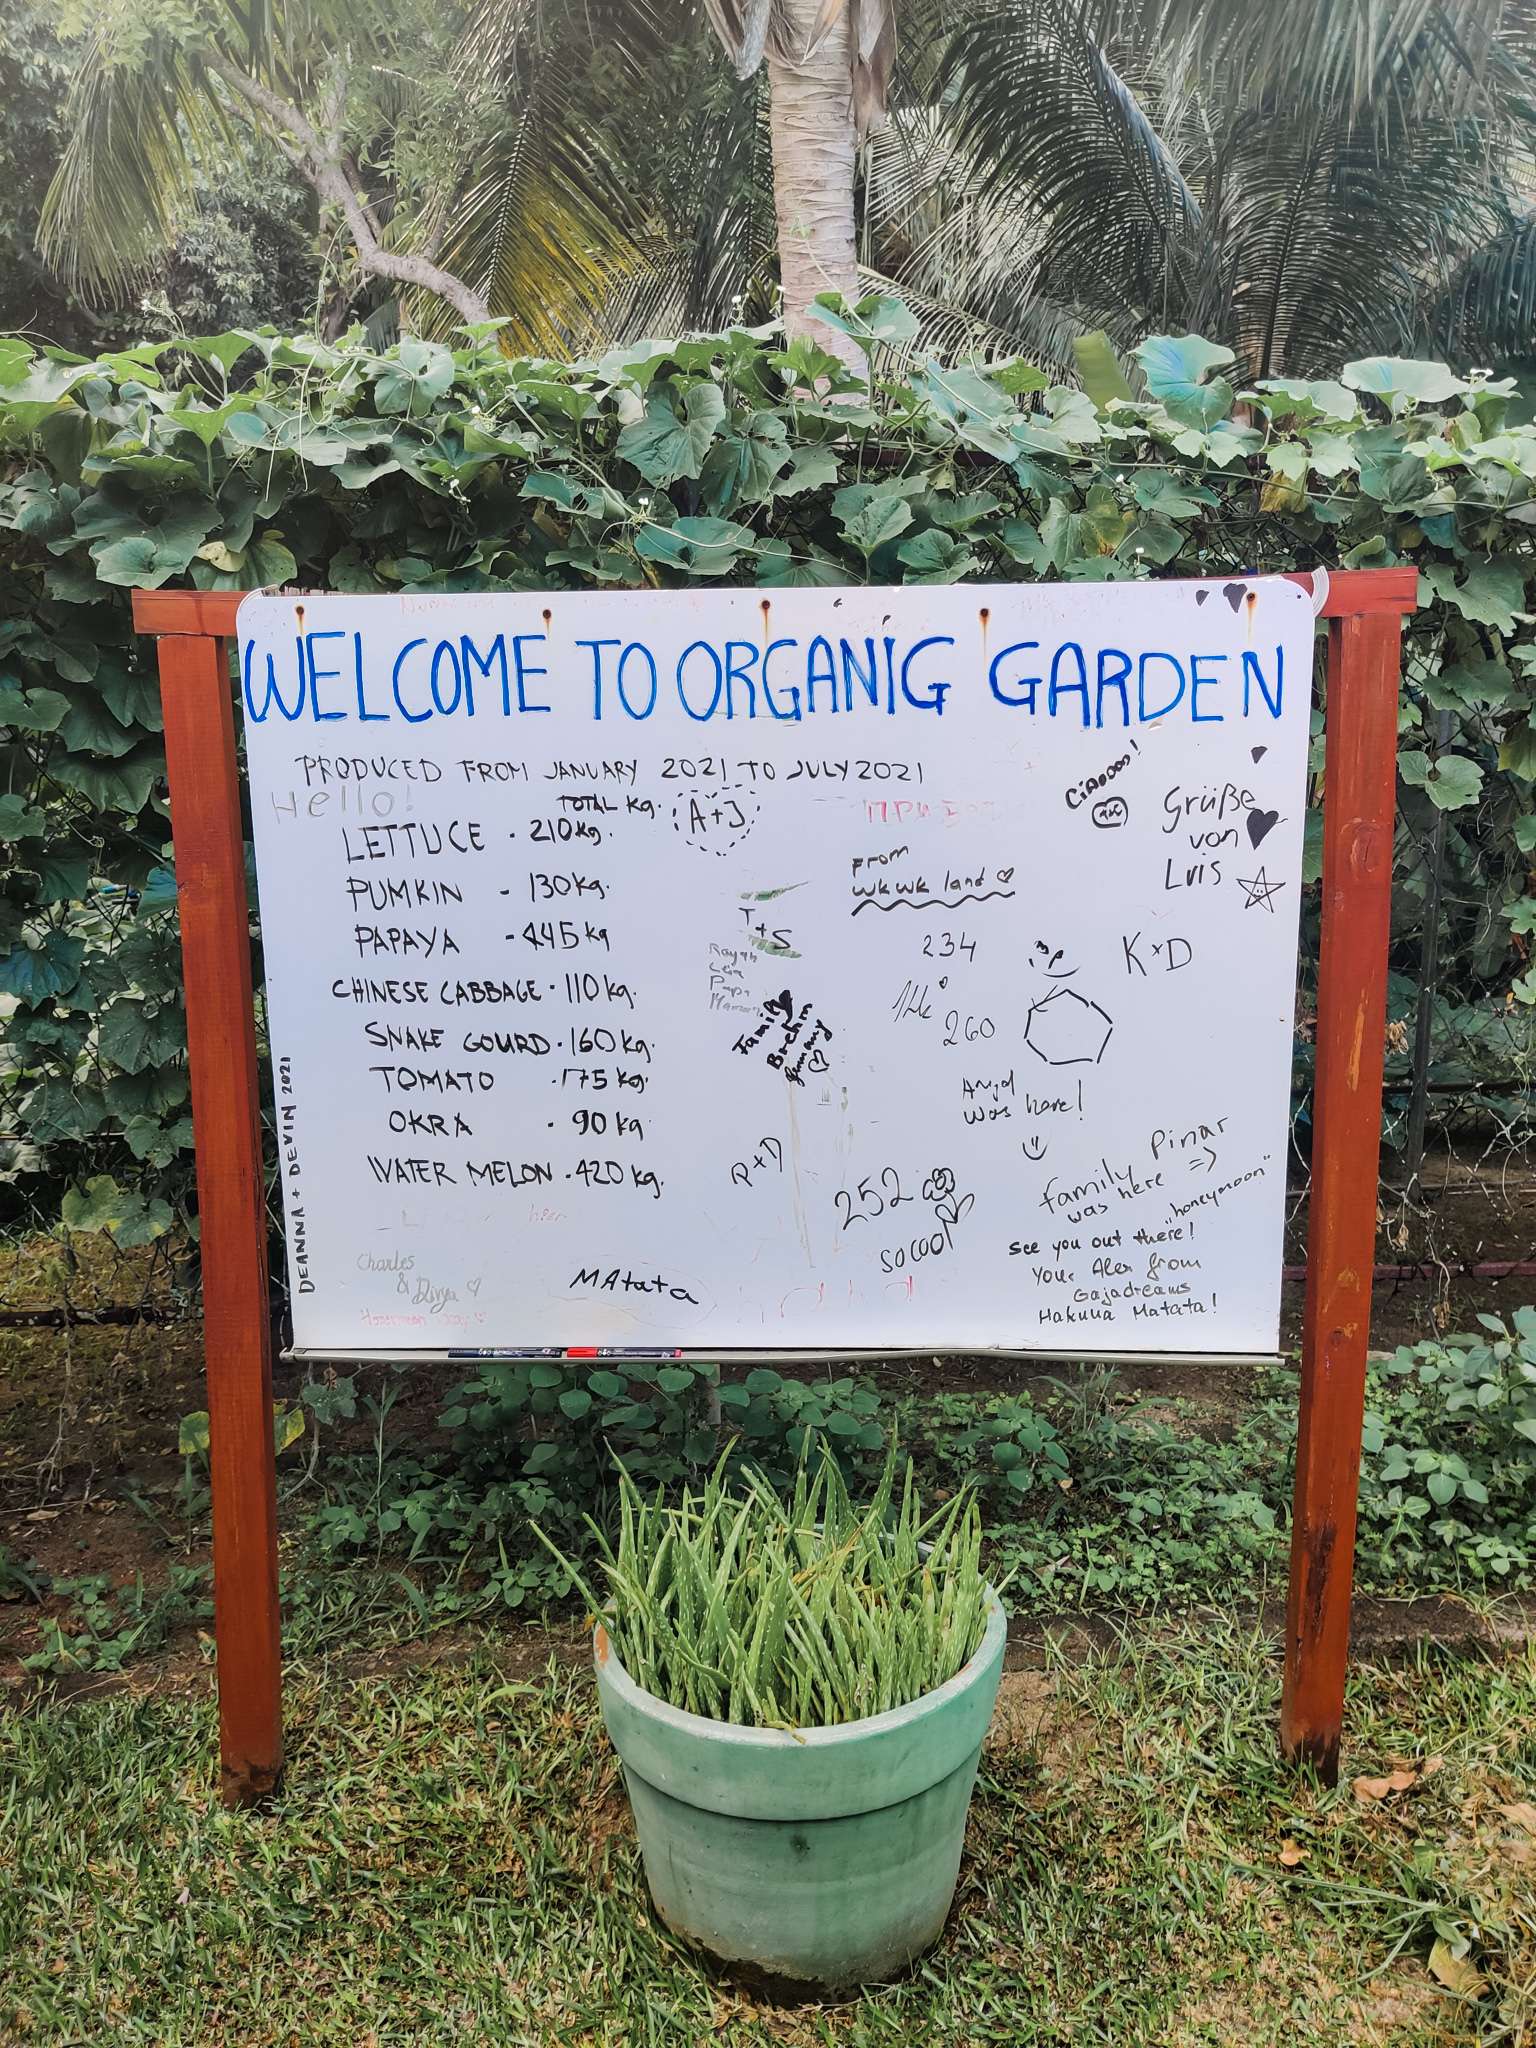 WELCOME TO ORGANIG GARDEN
PRODUCED FROM JANUARY 2021 TO JULY 2021
Hello!
TOTAL kg.
LETTUCE - 210kg.
PUMKIN - 130kg.
PAPAYA - 445kg
CHINESE CABBAGE - 110kg.
SNAKE GOURD - 160kg.
TOMATO - 175kg.
OKRA - 90kg
WATER MELON - 420kg.
DEANNA + DEVIN 2021
Charles
& Divya
MAtata
A+J
T
+S
Papa
Family
Germany
R+D
Ciaoooo!
Grüße
von
Luis
From
wkwk land
234
260
K+D
was here!
252
so cool
Pinar
family
was here =>
"honeymoon"
see you out there!
Your Alex from
Gajadreams
Hakuna Matata!